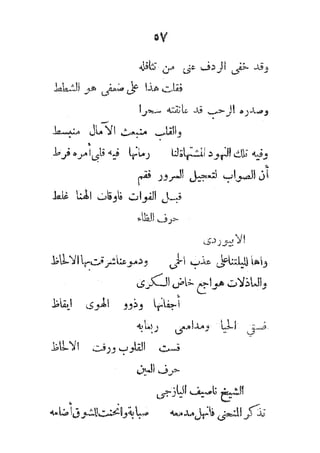 ٥٧
وقد خفى الردف عنى من تثاقله
فقلت هذا على ضعفى هو الشطط
وصدره الرحب قد عانقته سحرا
والقلب منبعث الآمال منبسط
وفيه تلك النهود المشتهاة لنا رمانها فيه قلبى أمره فرط
أن الصواب لتعجيل السرور فقم
قبل الفوات فاوقات الهنا غلط
حرف الظاء
الابيوردى
واها لليلتنا على عذب الحمى ودموعنا شرقت بها الالحاظ
والعاذلات هواجع خاض الكرى
أجفانها وذوو الهوى ايقاظ
الحيا ومدامعى ربعابه
قست القلوب ورقت الالحاظ
حرف العين
الشيخ ناصيف اليازجى
تذكر المنحنى فانهل مدمعه صبابة وانحنت للشوق أضلعه